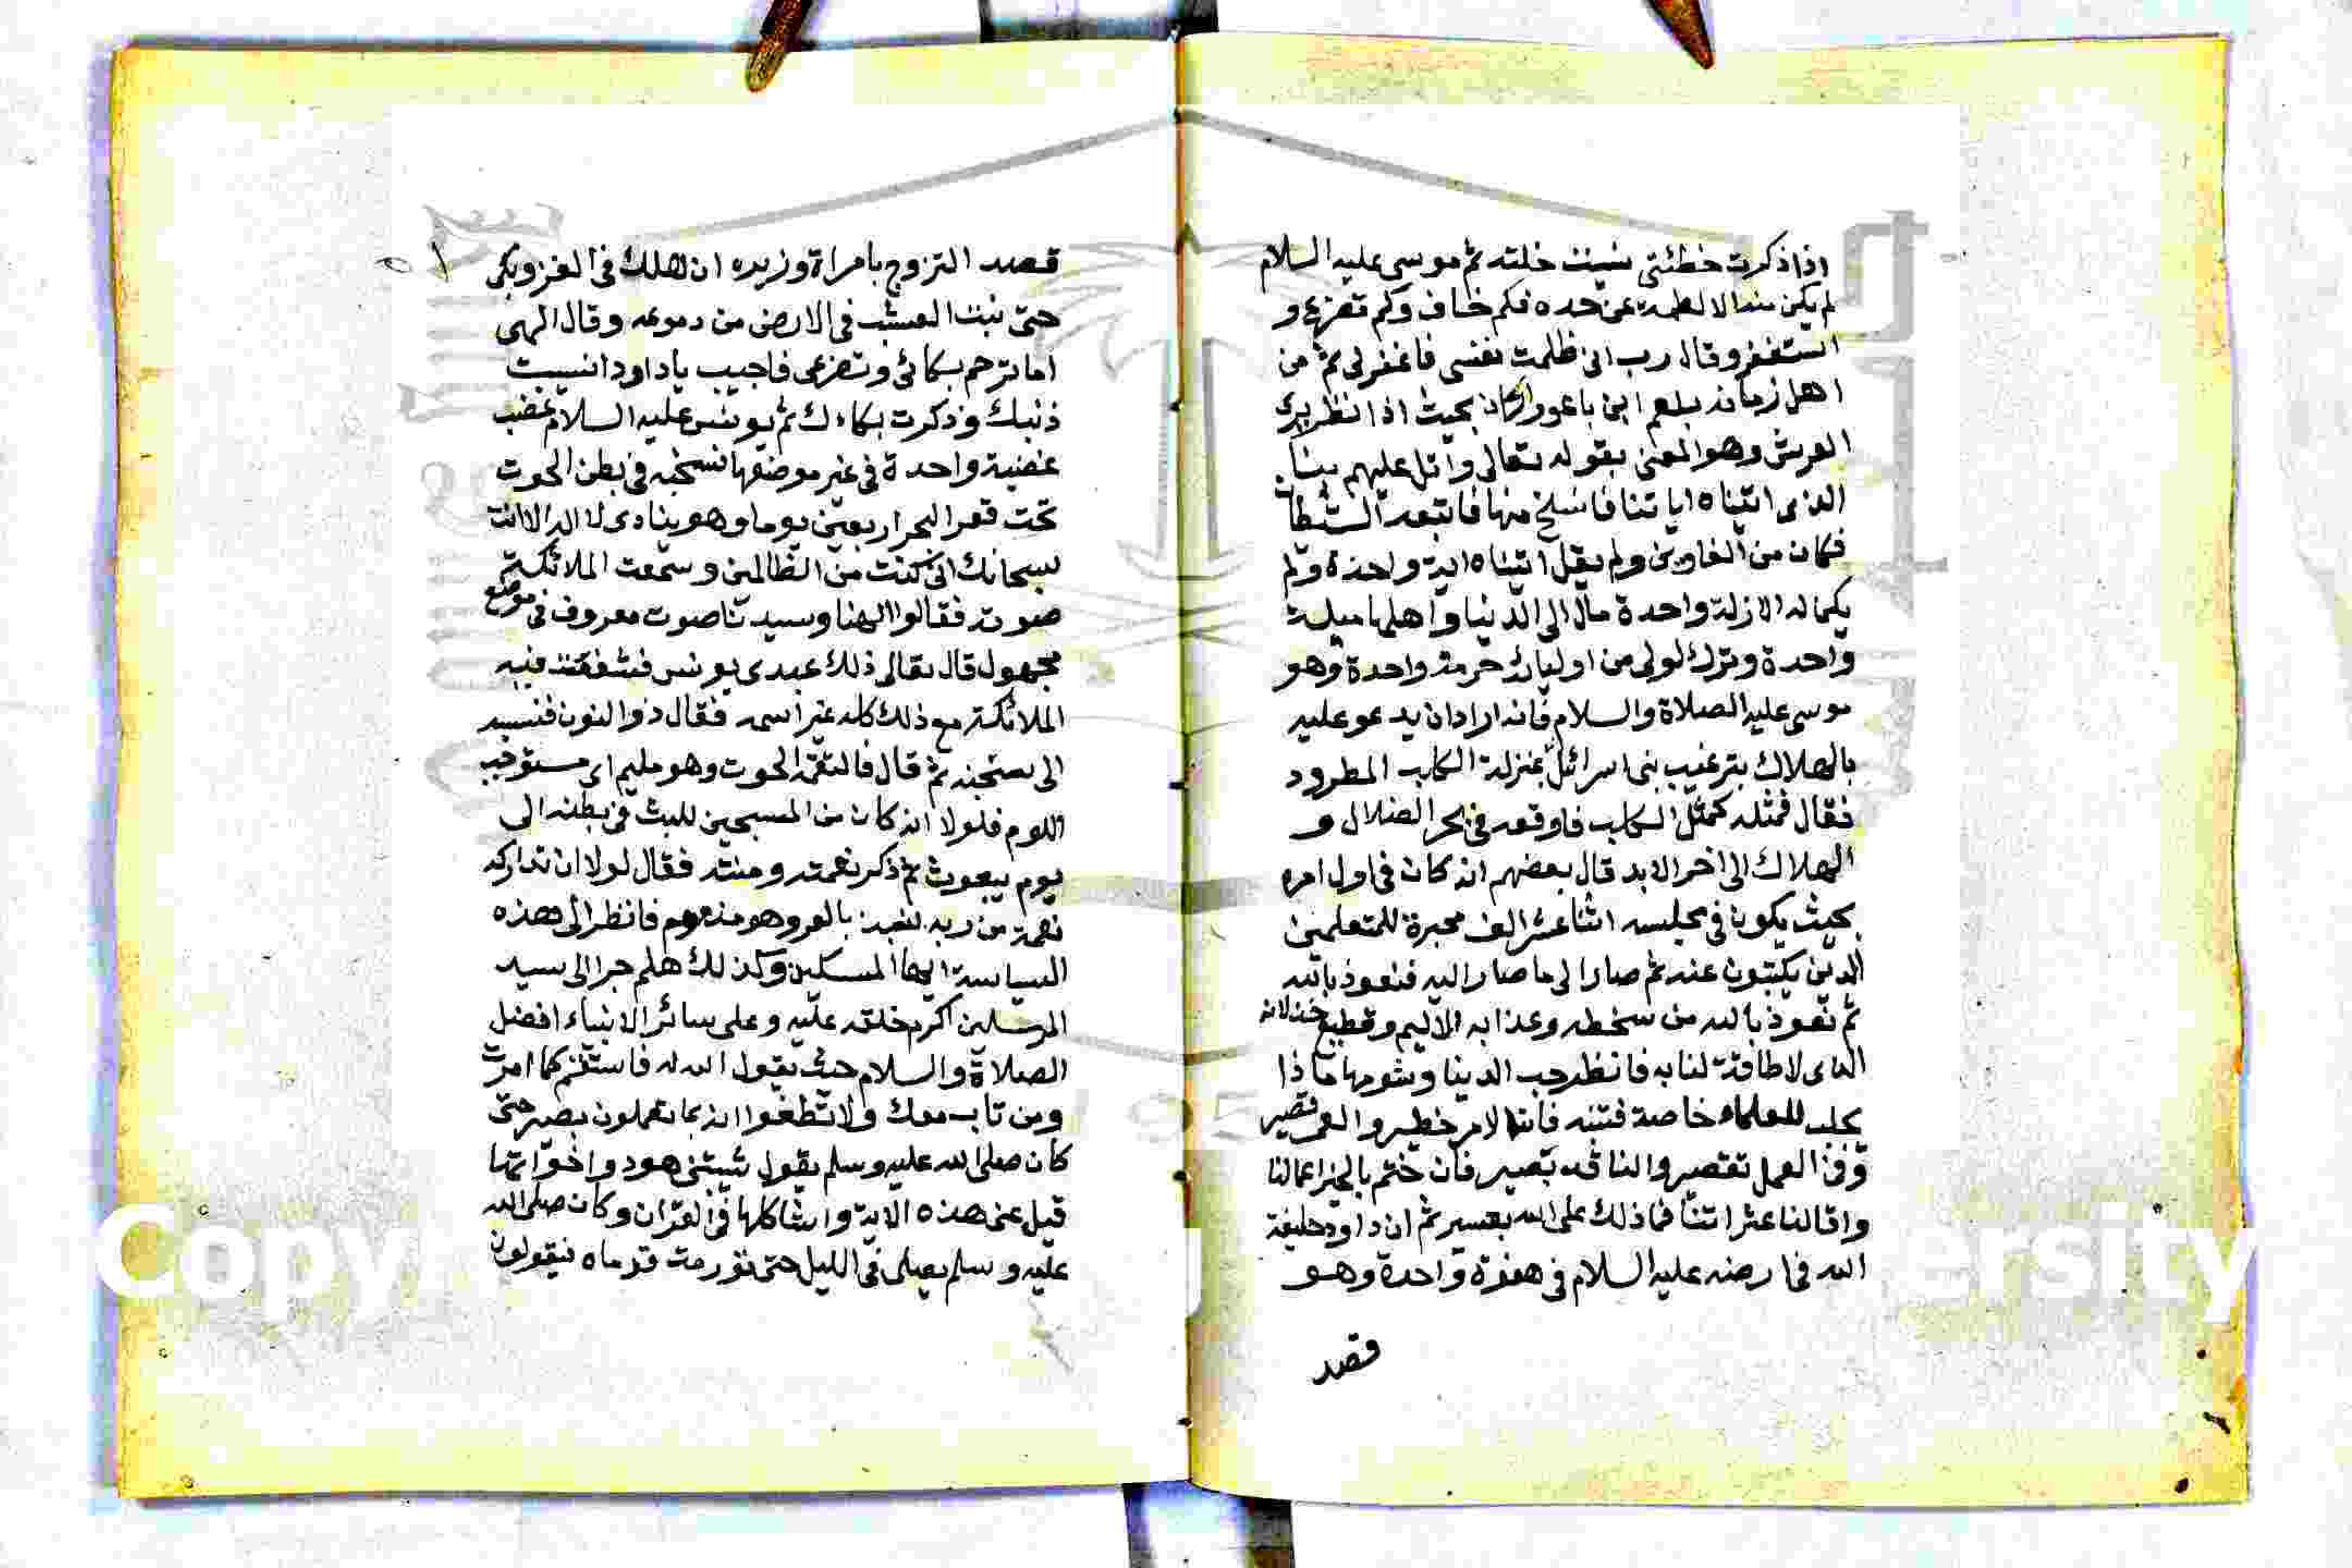 اذا ذكرت خطئتي نسيت خلته ثم موسى عليه السلام
لم يكن منه الا لطمة عن حده فكم خاف وكم تضرع و
استغفر وقال رب انى ظلمت نفسى فاغفر لى ثم من
اهل زمانه بلعم ابن باعورا كان بحيث اذا نظر يرى
العرش وهو المعنى بقوله تعالى واتل عليهم نبأ
الذى اتيناه اياتنا فانسلخ منها فاتبعه الشيطان
فكان من الغاوين ولم يقل اتيناه اية واحدة ولم
يكن له الا زلة واحدة مال الى الدنيا واهلها ميلة
واحدة وترك لولى من اوليائه حرمة واحدة وهو
موسى عليه الصلاة والسلام فانه اراد ان يدعو عليه
بالهلاك بترغيب بنى اسرائل بمنزلة الكلب المطرود
فقال فمثله كمثل الكلب فاوقعه فى بحر الضلال و
الهلاك الى اخر الابد قال بعضهم انه كان فى اول امره
بحيث يكون فى مجلسه اثنا عشر الف محبرة للمتعلمين
الذين يكتبون عنه ثم صار الى ما صار اليه فنعوذ بالله
ثم نعوذ بالله من سخطه وعذابه الاليم وقطيع خذلانه
الذى لا طاقة لنا به فانظر حب الدنيا وشومها ماذا
يجلب للعلماء خاصة فتنبه فان الامر خطير والعمر قصير
وفى العمل تقصير والناقد بصير فان ختم بالخير اعمالنا
واقالنا عثراتنا فما ذلك على الله بعسير ثم ان داود خليفة
الله فى ارضه عليه السلام فى هفوة واحدة وهو
قصد
قصد التزوج بامراة وزيره ان هلك فى الغزو بكى
حتى نبت العشب فى الارض من دموعه وقال الهى
اما ترحم بكائى وتضرعى فاجيب يا داود انسيت
ذنبك وذكرت بكاءك ثم يونس عليه السلام غضب
غضبة واحدة فى غير موضعها فسجنه فى بطن الحوت
تحت قعر البحر اربعين يوما وهو ينادى لا اله الا انت
سبحانك انى كنت من الظالمين وسمعت الملائكة
صوته فقالوا الهنا وسيدنا صوت معروف فى موضع
مجهول قال تعالى ذلك عبدى يونس فشفعت فيه
الملائكة مع ذلك كله غير اسمه فقال ذو النون فنسبه
الى سجنه ثم قال فالتقمه الحوت وهو مليم اى مستوجب
اللوم فلولا انه كان من المسبحين للبث فى بطنه الى
يوم يبعوث ثم ذكر نعمته ومنته فقال لولا ان تداركه
نعمة من ربه لنبذ بالعرو هو مذموم فانظر الى هذه
السياسة ايها المسكين وكذلك هلم جرا الى سيد
المرسلين اكرم خلقه عليه وعلى سائر الانبياء افضل
الصلاة والسلام حيث يقول الله له فاستقم كما امرت
ومن تاب معك ولا تطغوا انه بما تعملون بصير حتى
كان صلى الله عليه وسلم يقول شيبتنى هود واخواتها
قيل عنى هذه الاية واشاكلها فى القران وكان صلى الله
عليه وسلم يصلى فى الليل حتى تورمت قدماه فيقولون